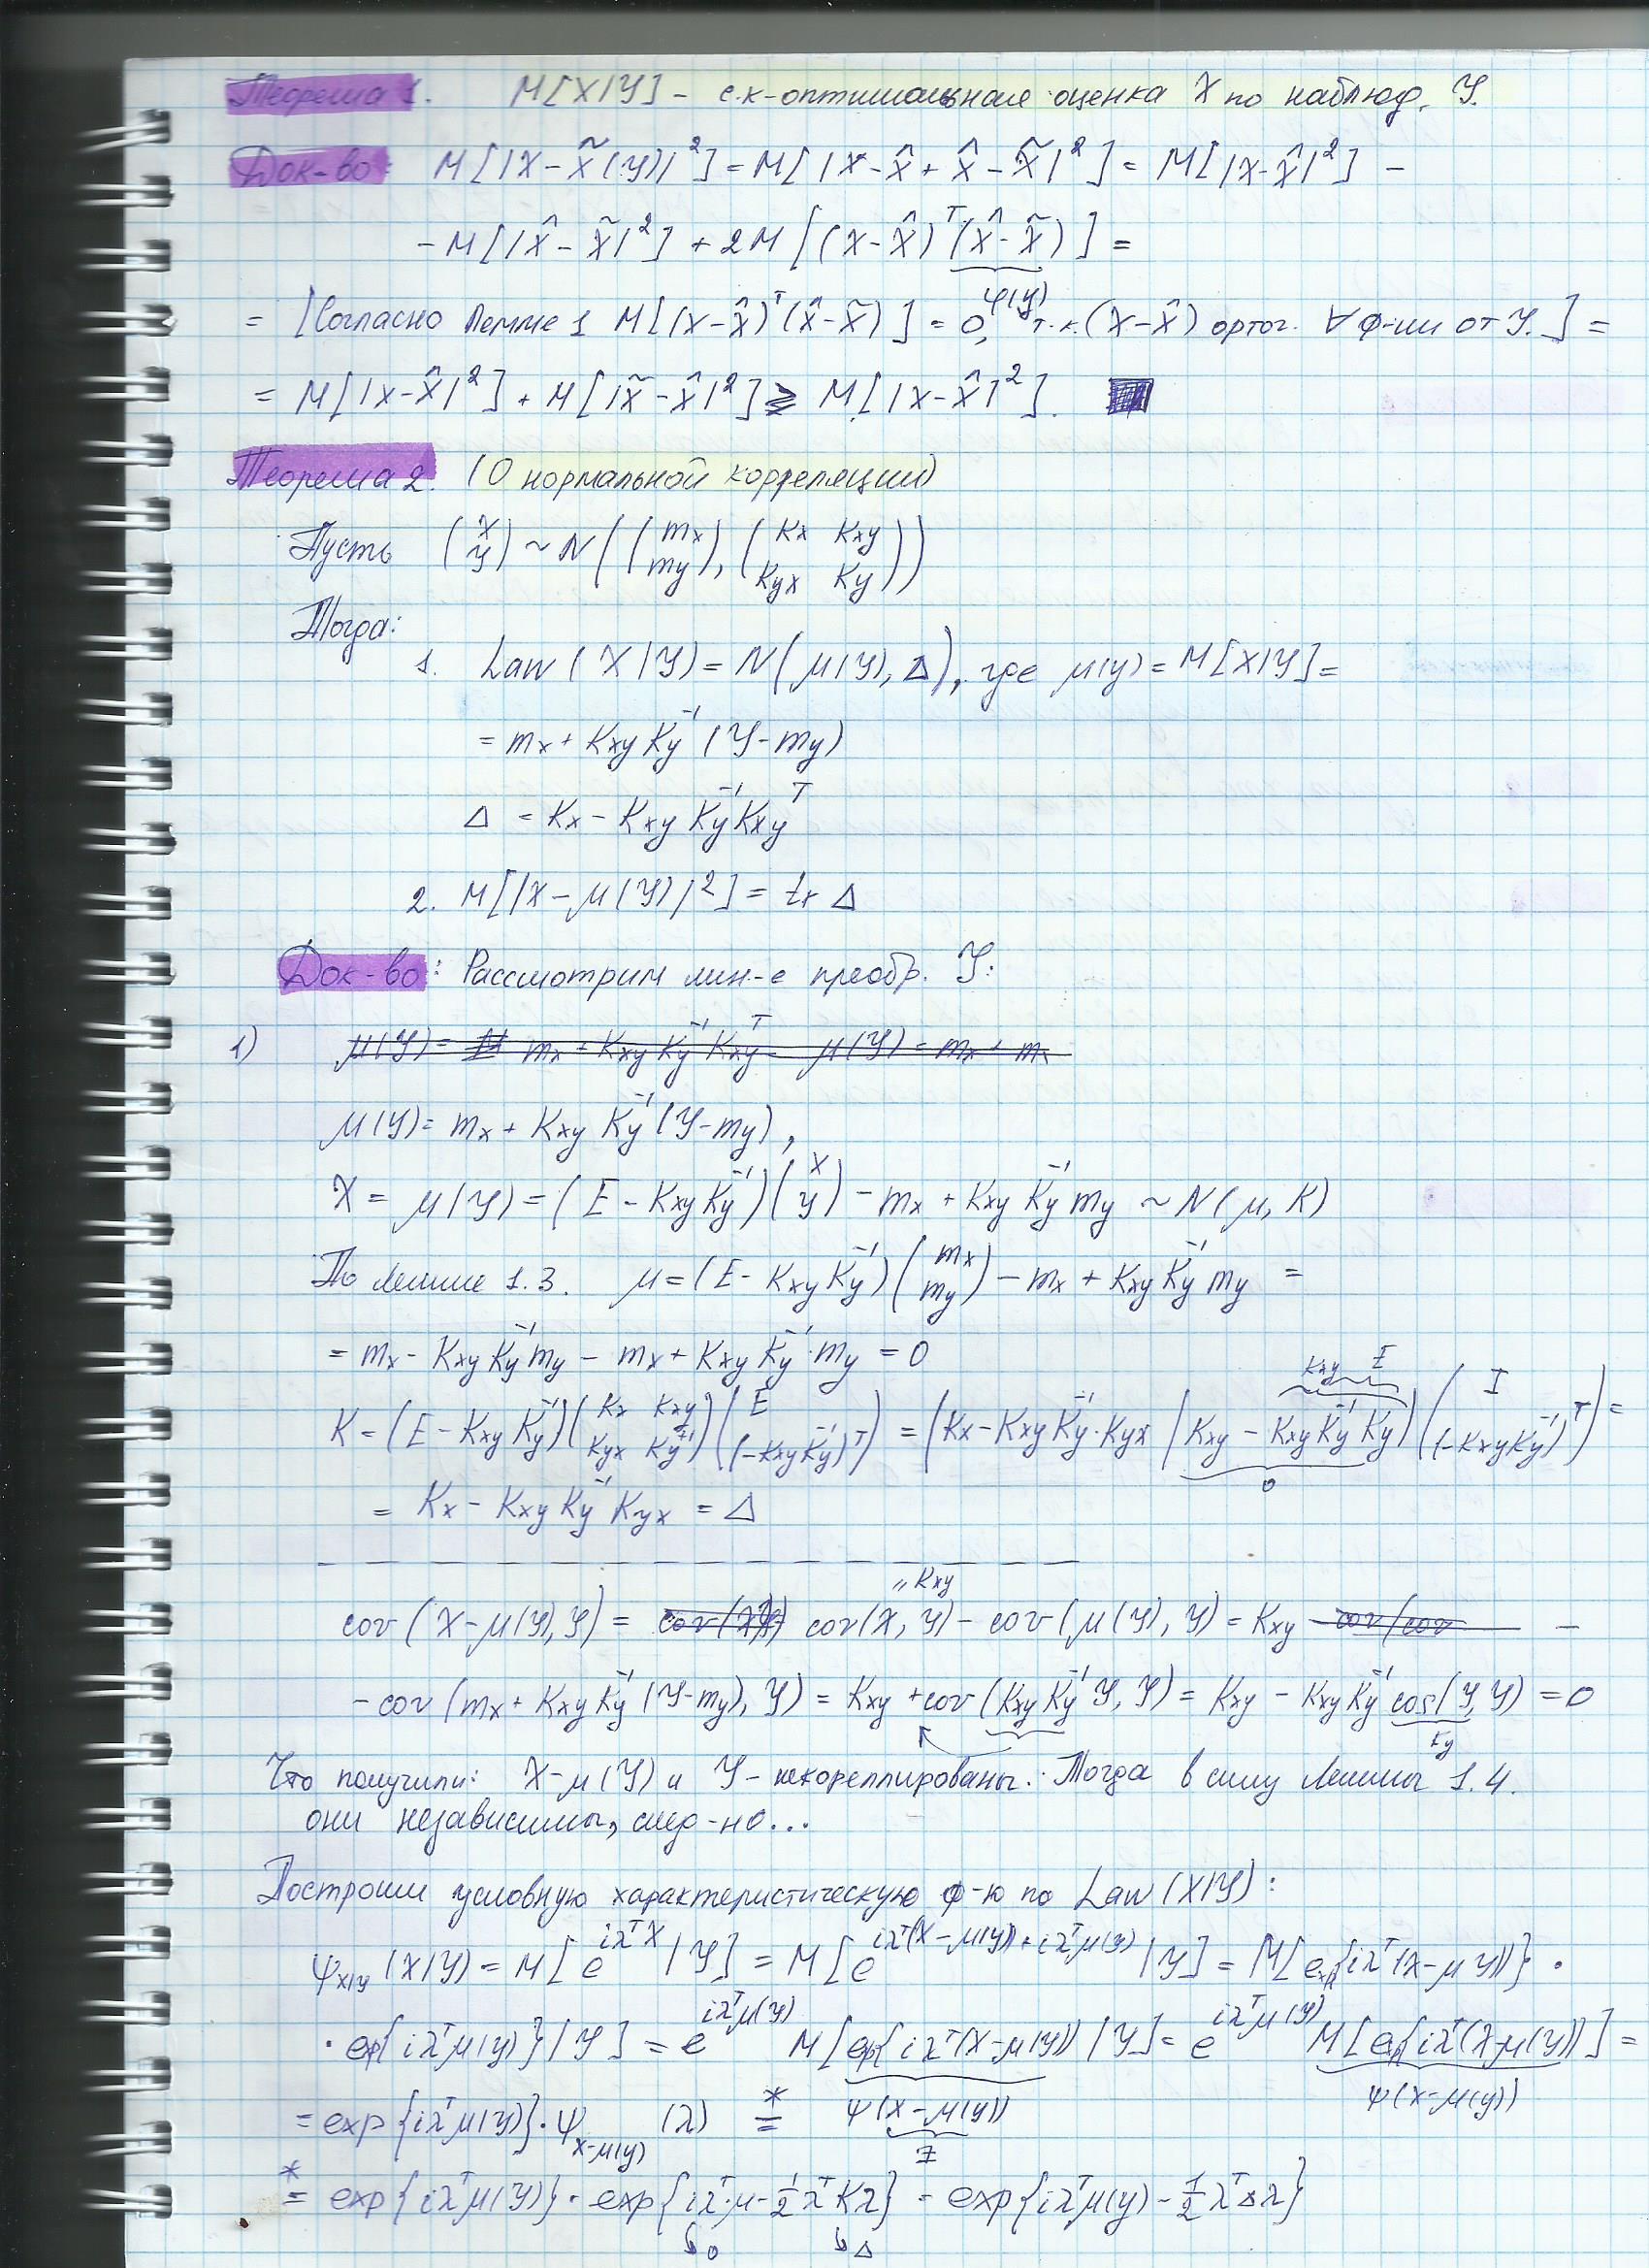 Теорема 1. M[X|Y] - с.к-оптимальная оценка X по наблюд. Y.
Док-во: M[|X-X̃(Y)|²] = M[|X-X̂+X̂-X̃|²] = M[|X-X̂|²] -
- M[|X̂-X̃|²] + 2M[(X-X̂)ᵀ(X̂-X̃)] =
φ(Y)
= [Согласно Лемме 1 M[(X-X̂)ᵀ(X̂-X̃)] = 0, т.к. (X-X̂) ортог. ∀ ф-ии от Y.] =
= M[|X-X̂|²] + M[|X̃-X̂|²] ≥ M[|X-X̂|²].
Теорема 2. (О нормальной корреляции)
Пусть (X Y) ~ N((mx my), (Kx Kxy Kyx Ky))
Тогда:
1. Law(X|Y) = N(μ(Y), Δ), где μ(y) = M[X|Y] =
= mx + Kxy Ky⁻¹ (Y-my)
Δ = Kx - Kxy Ky⁻¹ Kxyᵀ
2. M[|X-μ(Y)|²] = tr Δ
Док-во: Рассмотрим лин-е преобр. Y:
1) μ(Y) = M mx + Kxy Ky⁻¹ Kxyᵀ = μ(Y) = mx + mx
μ(Y) = mx + Kxy Ky⁻¹ (Y-my),
X = μ(Y) = (E - Kxy Ky⁻¹)(X Y) - mx + Kxy Ky⁻¹ my ~ N(μ, K)
По лемме 1.3. μ = (E - Kxy Ky⁻¹)(mx my) - mx + Kxy Ky⁻¹ my =
= mx - Kxy Ky⁻¹ my - mx + Kxy Ky⁻¹ · my = 0
Kxy E
K = (E - Kxy Ky⁻¹)(Kx Kxy Kyx Ky)(E (-Kxy Ky⁻¹)ᵀ) = (Kx - Kxy Ky⁻¹ · Kyx | Kxy - Kxy Ky⁻¹ Ky)(I (-Kxy Ky⁻¹)ᵀ) =
0
= Kx - Kxy Ky⁻¹ Kyx = Δ
" Kxy
cov(X-μ(Y), Y) = cov(X, Y) - cov(μ(Y), Y) = Kxy cov(cov -
- cov(mx + Kxy Ky⁻¹ (Y-my), Y) = Kxy + cov(Kxy Ky⁻¹ Y, Y) = Kxy - Kxy Ky⁻¹ cov(Y, Y) = 0
Ky
Что получили: X-μ(Y) и Y - некореллированы. Тогда в силу Леммы 1.4.
они независимы, след-но...
Построим условную характеристическую ф-ю по Law(X|Y):
Ψx|y(X|Y) = M[e^{iλᵀX} | Y] = M[e^{iλᵀ(X-μ(y)) + iλᵀμ(y)} | Y] = M[exp{iλᵀ(X-μ(Y))} ·
· exp{iλᵀμ(y)} | Y] = e^{iλᵀμ(y)} M[exp{iλᵀ(X-μ(y)) | Y] = e^{iλᵀμ(y)} M[exp{iλᵀ(X-μ(y))] =
Ψ(X-μ(y)) Ψ(X-μ(y))
Z
= exp{iλᵀμ(y)} · Ψx-μ(y) (λ) *=
*= exp{iλᵀμ(Y)} · exp{iλᵀ·μ - ½λᵀKλ} = exp{iλᵀμ(y) - ½λᵀΔλ}
↳ 0 ↳ Δ